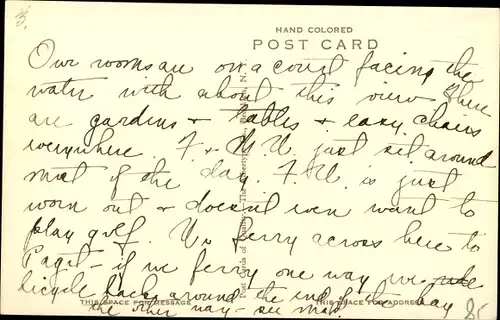 3.
HAND COLORED
POST CARD
Our rooms are on a court facing the
water with about this view There
are gardens & tables & easy chairs
everywhere. F. & M. U. just sit around
most of the day. F. U. is just
worn out & doesn't even want to
play golf. We ferry across here to
Paget - if we ferry one way we ride
bicycle back around the end of the bay
the other way - see map
THIS SPACE FOR MESSAGE
THIS SPACE FOR ADDRESS